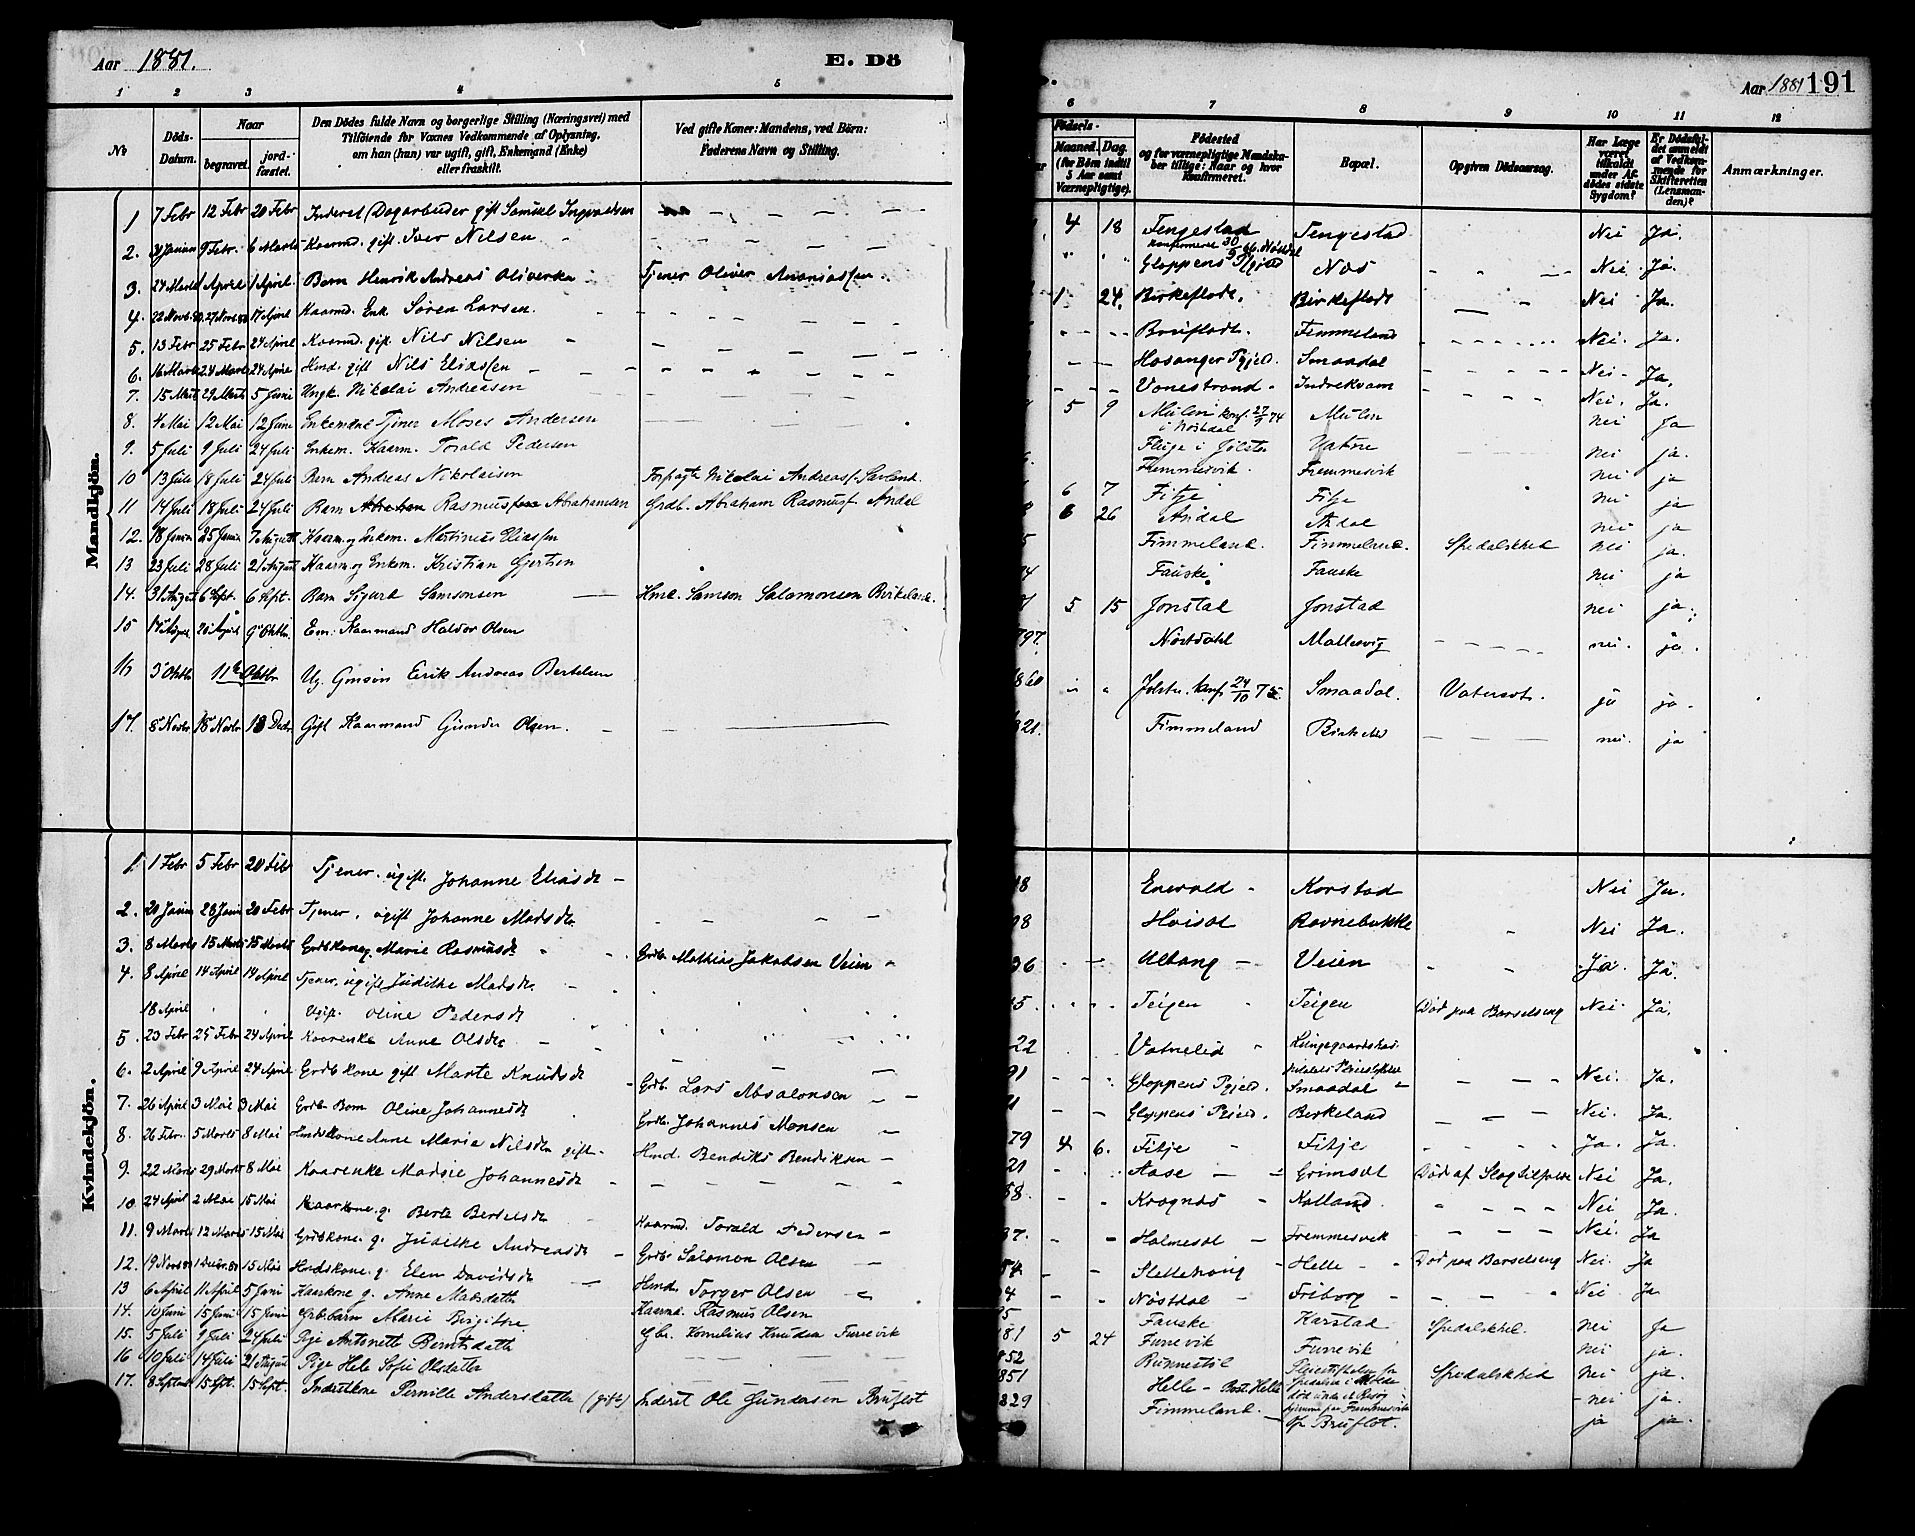 Aar 1881.
E. Dö
1 2 3 4 5
No
Döds-Datum.
Naar
begravet.
jord-fæstet.
Den Dödes fulde Navn og borgerlige Stilling (Næringsvei) med
Tilföiende for Voxnes Vedkommende af Oplysning,
om han (hun) var ugift, gift, Enkemand (Enke)
eller fraskilt.
Ved gifte Koner: Mandens, ved Börn:
Faderens Navn og Stilling.
Mandkjön.
1 7 Febr 12 Febr 20 Febr Inderst (Dagarbeider gift Samuel Ingvaldsen
2. 9 Febr. 6 Marts Kaarmd. gift. Iver Nilsen
3. 24 Marts 1 April 1 April Barn Henrik Andreas Oliversen Tjener Oliver Ananiassen.
4. 22 Novb. 80 27 Novb. 80 17 April Kaarmd. Enk. Søren Larsen.
5. 13 Febr 25 Febr 24 April Kaarmd. gift. Nils Nilsen
6. 16 Marts 24 Marts 24 April Hmd. gift Nils Eliassen
7. 15 Marts 29 Marts 5 Juni Ungk. Nikolai Andreasen
8. 4 Mai 12 Mai 12 Juni Enkemd. Tjener Moses Andersen
9. 5 Juli 9 Juli 24 Juli Enkem. Kaarm. Torald Pedersen
10 13 Juli 18 Juli 24 Juli Barn Andreas Nikolaisen Nikolai Andreass.
11 14 Juli 18 Juli 24 Juli Barn Rasmus Abrahamsen Grdb. Abraham Rasmuss. Andal
12. 18 Juni 25 Juni 7 August Kaarm. og Enkem. Martinus Eliassen
13 23 Juli 28 Juli 21 August Kaarm. og Enkem. Kristian Gjertsen
14. 31 August 6 Sept. 6 Sept. Barn Sigurd Samsonsen Hmd. Samson Salomonsen Birkeland.
15 9 Oktbr. Em: Kaarmand Haldor Olsen
16 5 Oktb 11te Oktbr Ug. Erik Andreas Bertelsen
17. 8 Novbr 18 Novbr 18 Decbr Gift Kaarmand Gunder Olsen.
Kvindekjön.
1. 1 Febr 5 Febr 20 Febr Tjener. ugift. Johanne Eliasdr
2. 20 Janur 28 Janur 20 Febr Tjener. ugift Johanne Madsdr.
3. 8 Marts 15 Marts 15 Marts Grdbkone g. Marie Rasmusdr Grdb. Mathias Jakobsen Veien
4. 8 April 14 April 14 April Tjener. ugift Judithe Madsdr.
18 April Ugift. Oline Pedersdr
5. 23 Febr 25 Febr 24 April Kaarenke Anne Olsdr.
6. 2 April 9 April 24 April Grdbkone gift Marte Knudsdr Grdb. Lars Absalonsen
7. 26 April 3 Mai 3 Mai Grdb. Barn Oline Johannesdr Grdbr. Johannes Monsen
8. 26 Febr. 5 Marts 8 Mai Hmdskone Anne Marie Nilsdr. gift Hmd. Bendiks Bendiksen
9. 22 Marts 29 Marts 8 Mai Kaarenke Madsie Johannesdr
10. 24 April 2 Mai 15 Mai Kaarkone. g. Berte Bertelsdr Kaarmd. Torald Pedersen
11. 9 Marts 12 Marts 15 Mai Grdbkone. g. Judithe Andreasdr Grdbr. Salomon Olsen
12. 19 Novb. 80 15 Mai Hmdskone. g. Elen Davidsdr Hmd. Torger Olsen
13 6 April 11 April 5 Juni Kaarkone g. Anne Madsdatter Kaarmd. Rasmus Olsen
14. 10 Juni 15 Juni 15 Juni Grb. barn Marie Birgithe Gbr. Kornelius Knudsen Furrevik
15. 5 Juli 9 Juli 24 Juli Pige Antonette Berntsdatter
16 10 Juli 14 Juli 21 August Pige Hele Sofie Olsdatter
17. 8 Septbr 15 Sept. 15 Sept. Inderstkone Pernille Andersdatter (gift) Inderst Ole Gundersen Bruflot
Aar 1881 191
6 7 8 9 10 11 12
Födsels-
Maaned. Dag.
(for Börn indtil 5 Aar samt Værnepligtige).
Födested
og for værnepligtige Mandskaber tillige: Naar og hvor Konfirmeret.
Bopæl.
Opgiven Dödsaarsag.
Har Læge været tilkaldt under Afdödes sidste Sygdom?
Er Dödsfaldet anmeldt af Vedkommende for Skifteretten (Lensmanden)?
Anmærkninger.
4 18 Tengestad Tengestad Nei Ja.
Konfirmeret 30/9 66. Nøstdal
Gloppens Pgjeld Nos Nei. Ja.
1 24. Birkeflodt. Birkeflodt Nei Ja.
Brufladt. Fimmeland Nei. Ja.
Hosanger Pgjeld. Smaadal Nei Ja.
Vonestrand Indrekvam Nei. Ja.
5 9 Mulen konf. 27/9 74 i Nøstdal Mulen nei Ja
Fluge i Jølster nei ja.
Fremmesvik. Fremmesvik nei ja
6 7 Fitje Fitje nei ja
6 26 Andal Andal nei ja
Fimmeland. Fimmeland. Spedalskhed nei ja.
Fauske Fauske nei ja
5 15 Jonstad Jonstad nei ja.
797 Nøstdahl Mallesvig nei. ja.
860 Jølster. konf. 24/10 75 Smaadal. Vatersot. ja ja.
821. Fimmeland Birkeld nei. ja
Korstad Nei Ja.
Høisæt Ravnebakke Nei Ja.
36 Veien Ja. Ja.
Teigen Teigen Død paa Barselseng Nei Ja.
22 Vatneled
91 Gloppens Pgjeld. Smaadal Nei. Ja.
Gloppens Pgjeld. Birkeland Nei. Ja.
79 4 6. Fitje Fitje Ja. Ja.
21 Aase Grimsæt Død af Slagtilfælde Nei Ja.
58. Krognæs Kalland Nei Ja.
37. Holmesæt Fremmesvik Nei. Ja
Slettehaug Helle Død paa Barselseng Nei. Ja
Nøstdal Friborg Nei Ja.
Fauske Karstad Spedalskhed. nei Ja
181 5 24 Furrevik Furrevik nei ja.
852 Rønnestøl
851 Helle Spedalskhed nei ja.
829 Fimmeland. Bruflot. ja ja.